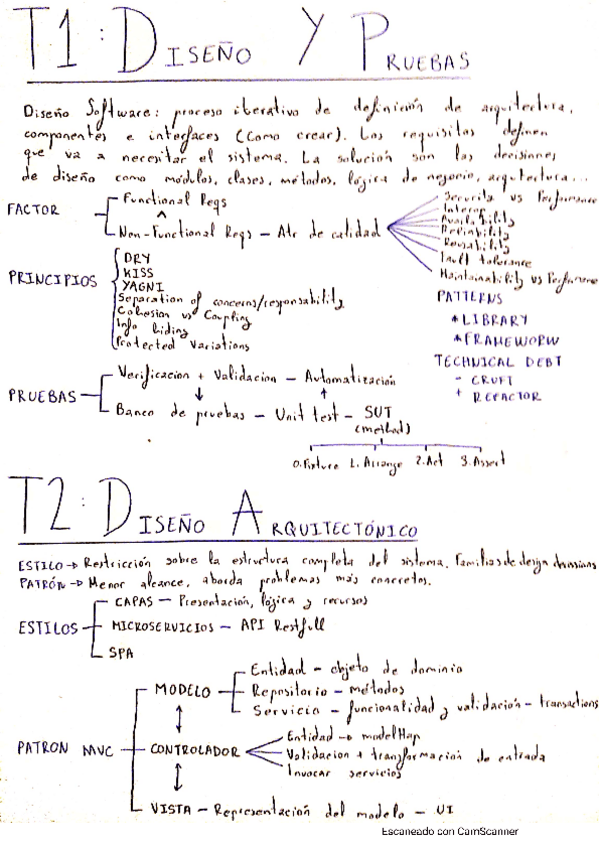 T1: DISEÑO Y PRUEBAS
Diseño Software: proceso iterativo de definición de arquitectura,
componentes e interfaces (como crear). Los requisitos definen
que va a necesitar el sistema. La solución son las decisiones
de diseño como módulos, clases, métodos, lógica de negocio, arquitectura...
FACTOR
Functional Reqs
Non-Functional Reqs – Atr de calidad
Security vs Performance
Interop
Availability
Reliability
Reusability
Fault tolerance
Maintainability vs Performance
PRINCIPIOS
DRY
KISS
YAGNI
Separation of concerns/responsability
Cohesion vs Coupling
Info hiding
Protected Variations
PATTERNS
* LIBRARY
* FRAMEWORK
TECHNICAL DEBT
- CRUFT
+ REFACTOR
PRUEBAS
Verificacion + Validacion – Automatización
Banco de pruebas – Unit test – SUT
(method)
0. Fixture 1. Arrange 2. Act 3. Assert
T2: DISEÑO ARQUITECTÓNICO
ESTILO → Restricción sobre la estructura completa del sistema. Familias de design decissions
PATRÓN → Menor alcance, aborda problemas más concretos.
ESTILOS
CAPAS – Presentación, lógica y recursos
MICROSERVICIOS – API Restfull
SPA
PATRON MVC
MODELO
Entidad – objeto de dominio
Repositorio – métodos
Servicio – funcionalidad y validación – transactions
CONTROLADOR
Entidad → modelMap
Validacion + transformacion de entrada
Invocar servicios
VISTA – Representacion del modelo – UI
Escaneado con CamScanner